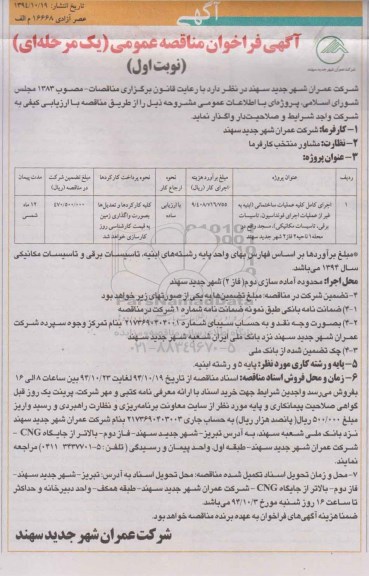 تاریخ انتشار: ۱۳۹۴/۱۰/۱۹
عصر آزادی ۱۶۶۶۸ م الف
آگهی
آگهی فراخوان مناقصه عمومی (یک مرحله‌ای)
(نوبت اول)
شرکت عمران شهر جدید سهند
شرکت عمران شهر جدید سهند در نظر دارد با رعایت قانون برگزاری مناقصات- مصوب ۱۳۸۳ مجلس
شورای اسلامی، پروژه‌ای با اطلاعات عمومی مشروحه ذیل را از طریق مناقصه با ارزیابی کیفی به
شرکت واجد شرایط و صلاحیت‌دار واگذار نماید.
۱- کارفرما: شرکت عمران شهر جدید سهند
۲- نظارت: مشاور منتخب کارفرما
۳- عنوان پروژه:
ردیف
عنوان پروژه
مبلغ برآورد هزینه اجرای کار (ریال)
نحوه ارجاع کار
نحوه پرداخت کارکردها
مبلغ تضمین شرکت در مناقصه (ریال)
مدت پیمان
۱
اجرای کامل کلیه عملیات ساختمانی (ابنیه به غیر از عملیات اجرای فونداسیون، تاسیسات برقی، تاسیسات مکانیکی)، مسجد واقع بین محله ۱ تا ۳ فاز ۲ شهر جدید سهند
۹/۴۰۸/۷۱۹/۷۵۵
با ارزیابی ساده
کلیه کارکردها و تعدیل‌ها بصورت واگذاری زمین به قیمت کارشناسی روز کارسازی خواهد شد
۴۷۰/۵۰۰/۰۰۰
۱۲ ماه شمسی
*مبلغ برآوردها بر اساس فهارس بهای واحد پایه رشته‌های ابنیه، تاسیسات برقی و تاسیسات مکانیکی
سال ۱۳۹۴ می‌باشد.
محل اجرا: محدوده آماده سازی دوم( فاز ۲) شهر جدید سهند
۴- تضمین شرکت در مناقصه: مبلغ تضمین‌ها به یکی از صورتهای زیر خواهد بود
۴-۱) ضمانت نامه بانکی طبق نمونه ضمانت نامه شماره ۱ شرکت در مناقصه
۴-۲) بصورت وجه نقد و به حساب سیبای شماره ۲۱۷۳۶۹۰۲۰۳۰۰۱ بنام تمرکز وجوه سپرده شرکت
عمران شهر جدید سهند نزد بانک ملی ایران شعبه شهر جدید سهند
۴-۳) چک تضمین شده از بانک ملی
۵- پایه و رشته کاری مورد نظر: پایه ۵ و رشته ابنیه.
۶- زمان و محل فروش اسناد مناقصه: اسناد مناقصه از تاریخ ۹۴/۱۰/۱۹ لغایت ۹۴/۱۰/۲۳ بین ساعات ۸ الی ۱۶
بفروش می‌رسد واجدین شرایط جهت خرید اسناد با ارائه معرفی نامه کتبی و مهر شرکت، پرینت یک روز قبل
گواهی صلاحیت پیمانکاری و پایه مورد نظر از سایت معاونت برنامه‌ریزی و نظارت راهبردی و رسید واریز
مبلغ ۵۰۰/۰۰۰ ریال( پانصد هزار ریال) به حساب جاری ۲۱۷۳۶۹۰۲۰۴۰۰۳ بنام شرکت عمران شهر جدید سهند
نزد بانک ملی شعبه سهند، به آدرس تبریز- شهر جدید سهند- فاز دوم- بالاتر از جایگاه CNG -
شرکت عمران شهر جدید سهند- طبقه اول- واحد پیمان و رسیدگی ( تلفن: ۵-۳۳۴۳۷۷۰۱ ۰۴۱۱) مراجعه
نمایند.
۷- محل و زمان تحویل اسناد تکمیل شده مناقصه: محل تحویل اسناد به آدرس: تبریز- شهر جدید سهند-
فاز دوم- بالاتر از جایگاه CNG - شرکت عمران شهر جدید سهند- طبقه همکف- واحد دبیرخانه و حداکثر
تا ساعت ۱۶ روز شنبه مورخ ۹۴/۱۰/۳ می‌باشد.
ضمنا هزینه آگهی‌های فراخوان به عهده برنده مناقصه خواهد بود.
شرکت عمران شهر جدید سهند
۰۲۱-۸۸۳۴۹۶۷۰-۵